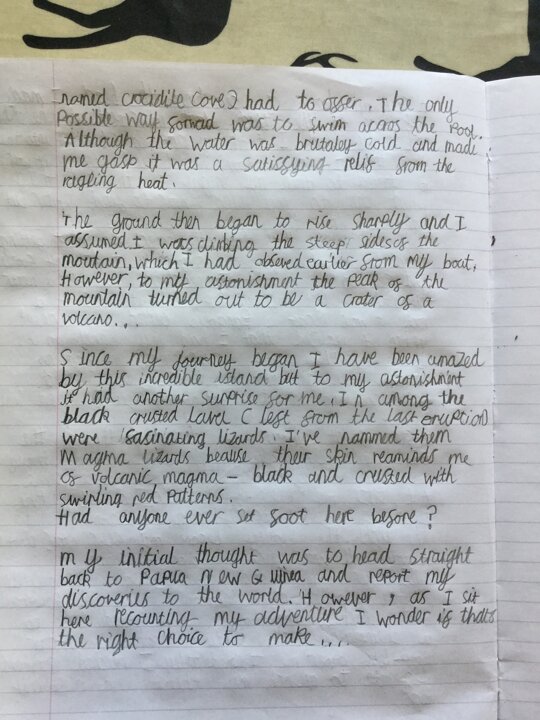 named crocidile Cove) had to offer. The only
Possible way forwad was to swim across the Pool.
Although the water was brutaley cold and made
me gasp it was a satisfying relif from the
ragling heat.
The ground then began to rise sharply and I
assumed I was climbing the steep sides of the
moutain, which I had obseved earlier from my boat.
However, to my astonishment the peak of the
mountain turned out to be a crater of a
volcano...
Since my journey began I have been amazed
by this incredible island but to my astonishment
it had another surprise for me. In among the
black crusted lava (left from the last eruption)
were fasinating lizards. I've nammed them
Magma lizards because their skin reaminds me
of volcanic magma - black and crusted with
swirling red patterns.
Had anyone ever set foot here before?
My initial thought was to head straight
back to Papua New Guinea and report my
discoveries to the world. However, as I sit
here recounting my adventure I wonder if thats
the right choice to make....